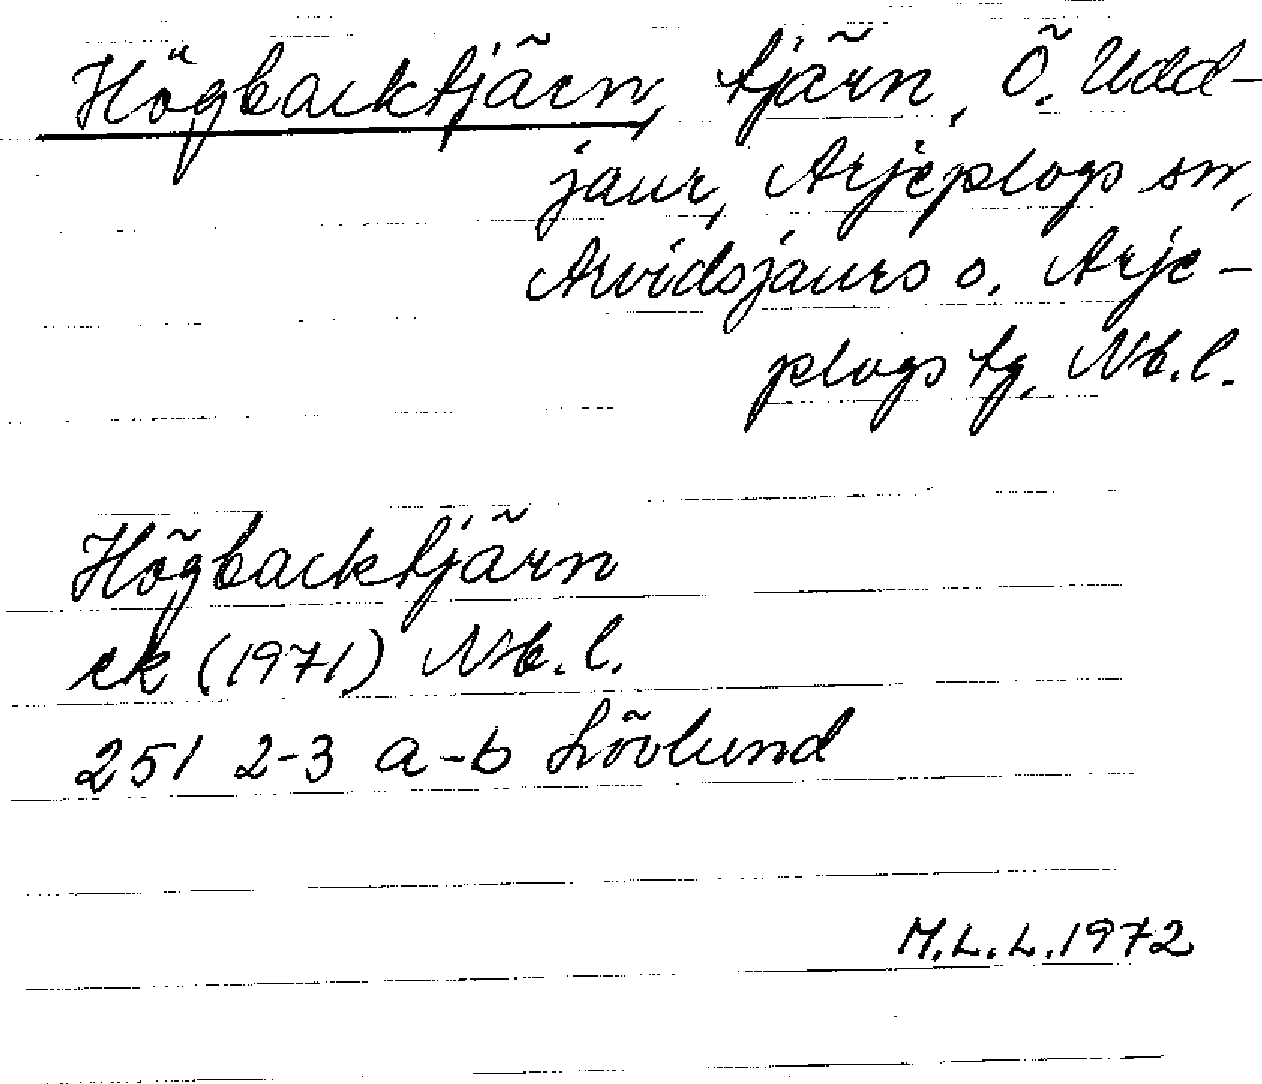 Högbacktjärn, tjärn, Ö. Udd-
jaur, Arjeplogs sn,
Arvidsjaurs o. Arje-
plogs tg, Nb. l.
Högbacktjärn
ek (1971) Nb. l.
251 2-3 a-b Lövlund
M.L.L. 1972